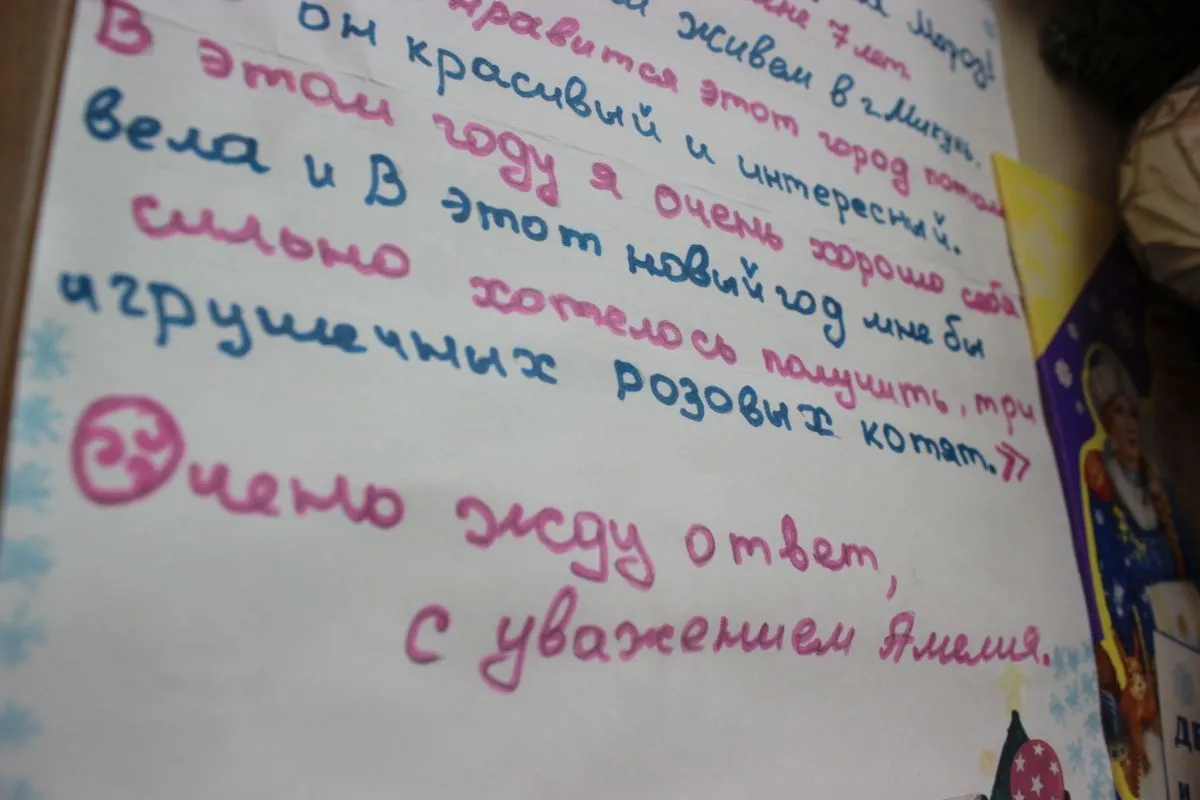 Мороз!
мне 7 лет
живем в г. Микунь.
нравится этот город потом
он красивый и интересный.
В этом году я очень хорошо себя
вела и В этот новый год мне бы
сильно хотелось получить, три
игрушечных розовых котят.»
Очень жду ответ,
с уважением Амелия.